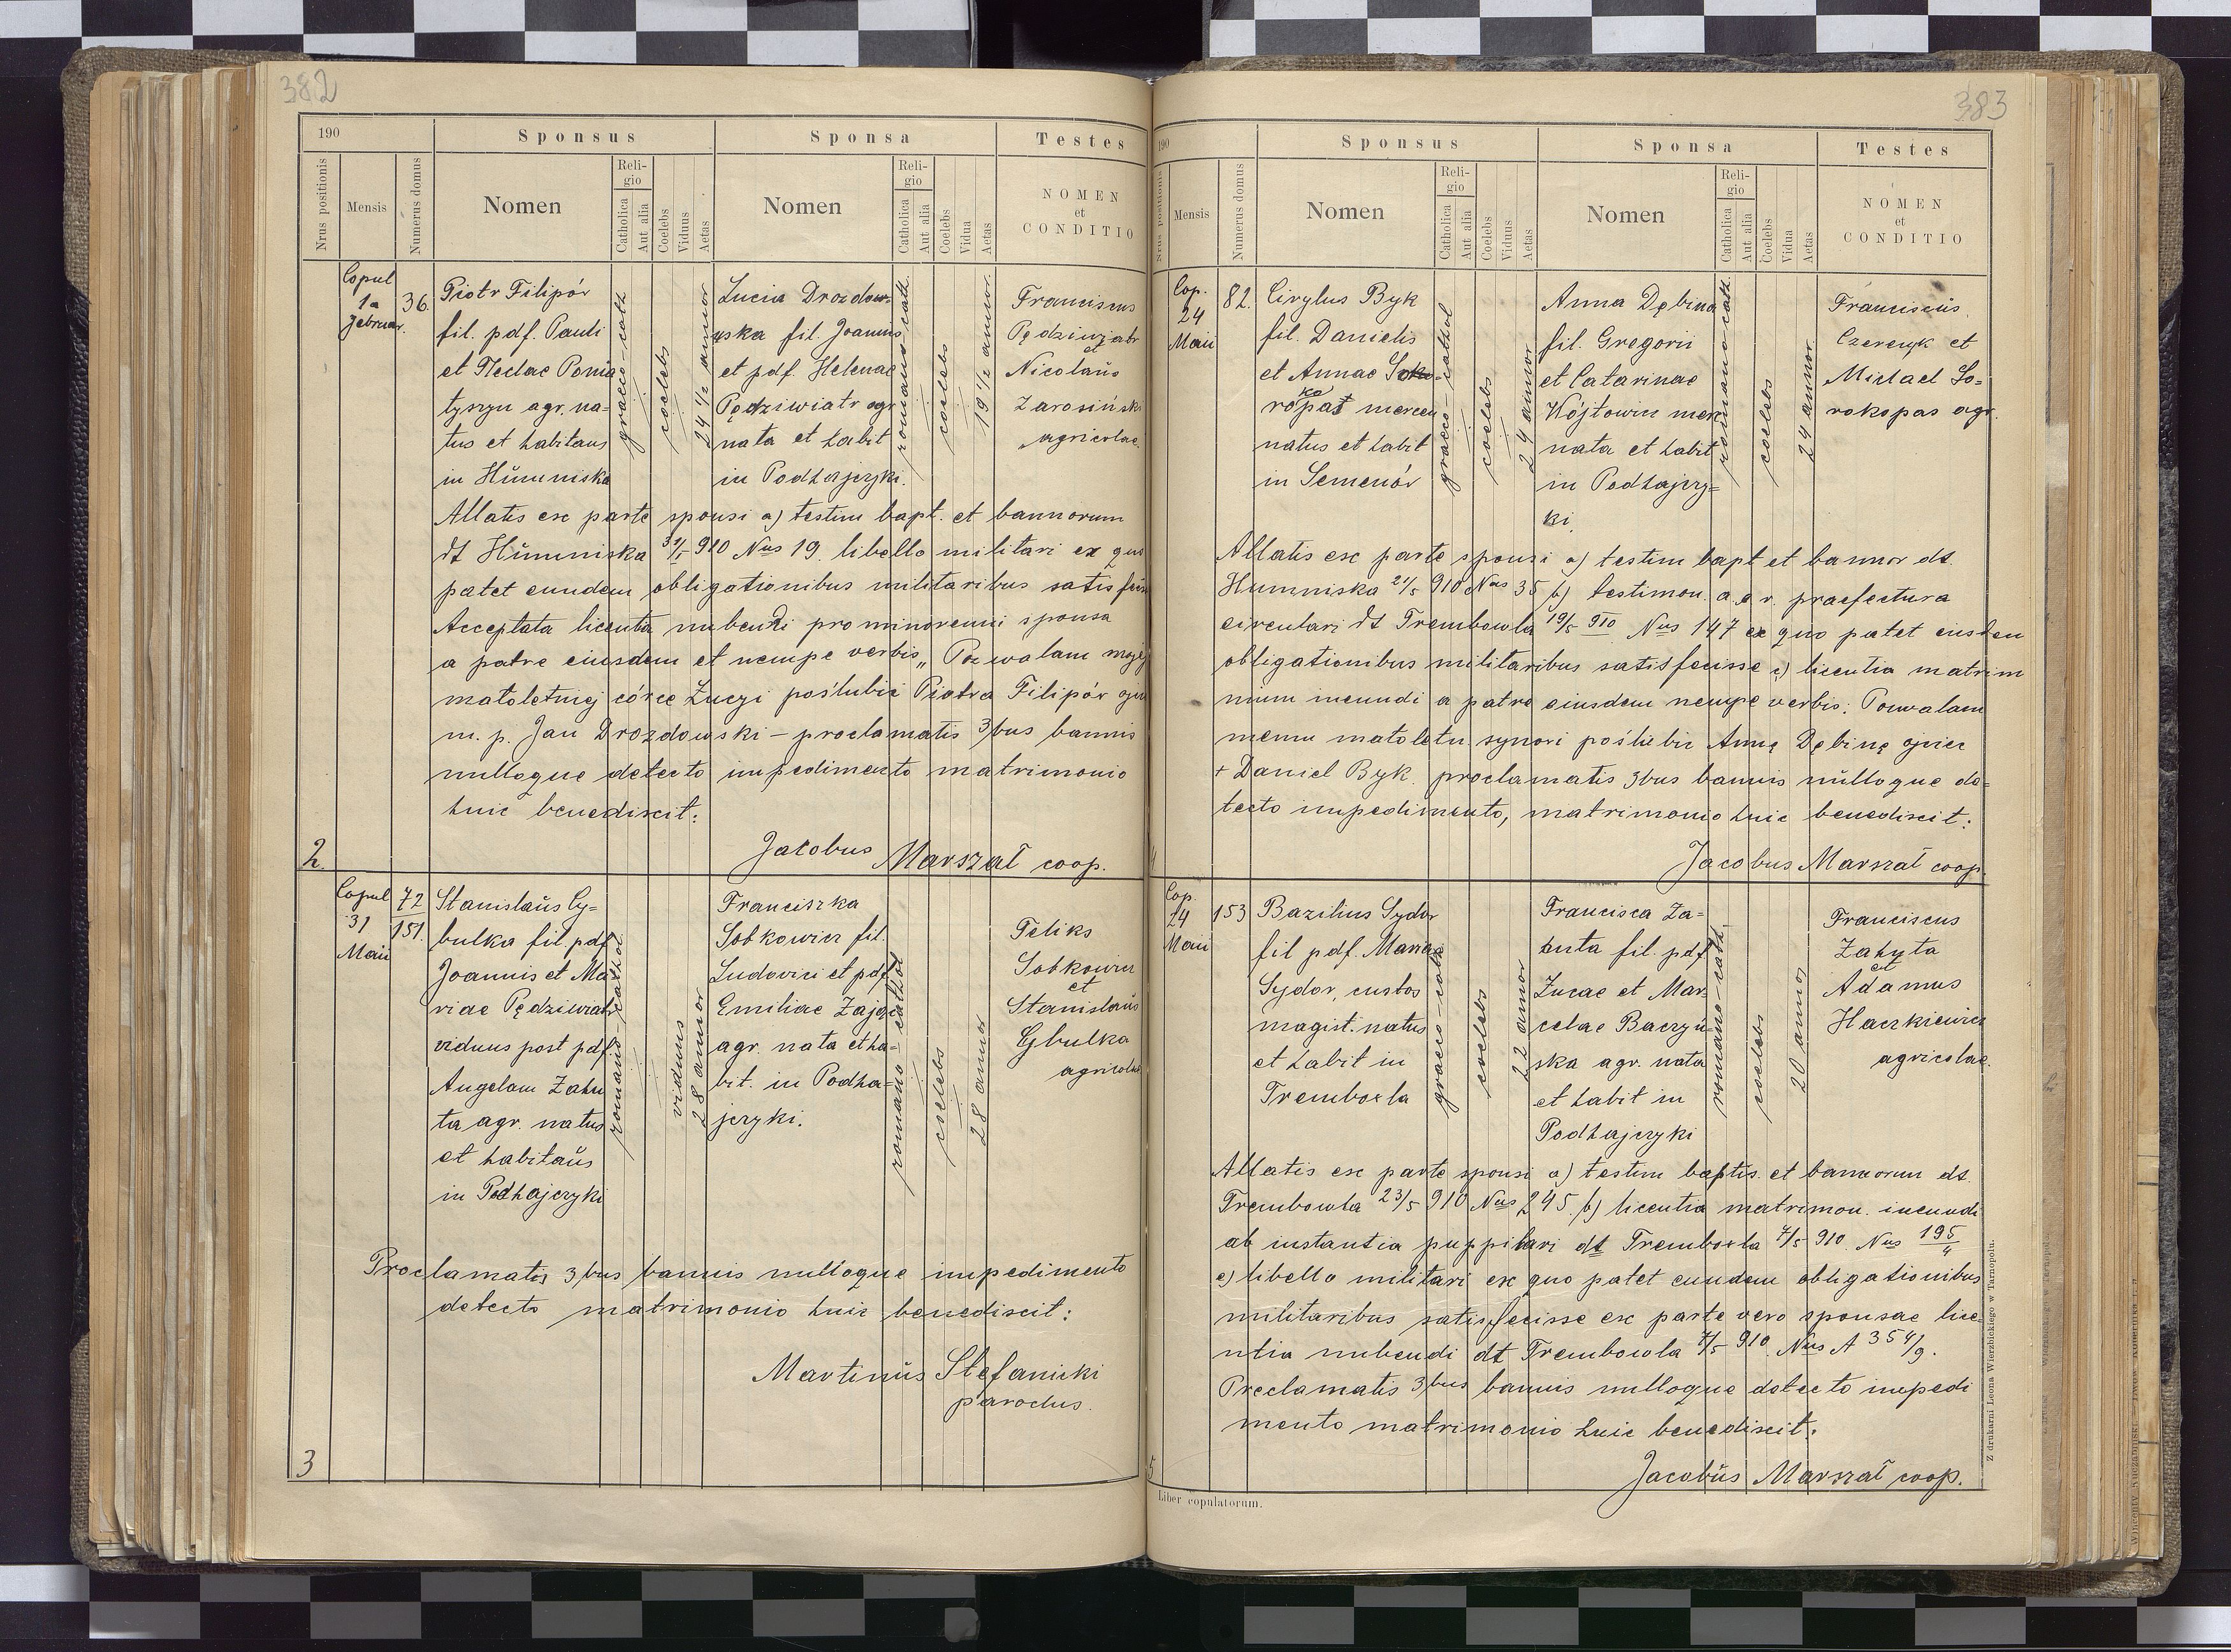 382
190
Sponsus
Sponsa
Testes
Nrus positionis
Mensis
Numerus domus
Nomen
Religio
Catholica
Aut alia
Coelebs
Viduus
Aetas
Nomen
Religio
Catholica
Aut alia
Coelebs
Vidua
Aetas
NOMEN
et
CONDITIO
Copul
1a
Februar.
36.
Piotr Filipór
fil. pdf. Pauli
et Teclae Ponia
tyszyn agr. na-
tus et habitans
in Humniska
graeco-cath
coelebs
24 1/2 annor
Lucia Drozdow-
ska fil. Joannis
et pdf. Helenae
Pędziwiatr agr
nata et habit
in Podhajczyki.
romano-cath.
coelebs
19 1/2 annor.
Franciscus
Pędziwiatr
et
Nicolaus
Zarosiński
agricolae.
Allatis ex parte sponsi a) testim bapt. et bannorum
dt Humniska 31/5 910 Nus 19. libello militari ex quo
patet eundem obligationibus militaribus satisfecis
Acceptata licentia nubendi pro minorenni sponsa
a patre eiusdem et nempe verbis „Pozwalam mojej
małoletniej córce Łucyi poślubić Piotra Filipór ojc
m. p. Jan Drozdowski - proclamatis 3bus bannis
nulloque detecto impedimento matrimonio
huic benedixit:
Jacobus Marszał coop.
2.
Copul
31
Maii
72
151.
Stanislaus Cy-
bulka fil. pdf
Joannis et Ma
riae Pędziwiatr
viduus post pdf.
Angelam Zahu
ta agr. natus
et habitans
in Podhajczyki
romano-cathol
viduus
28 annor
Franciszka
Sobkowicz fil.
Ludovici et pdf
Emiliae Zając
agr. nata et ha-
bit. in Podha-
jczyki.
romano-cathol
coelebs
28 annor
Feliks
Sobkowicz
et
Stanislaus
Cybulka
agricolae
Proclamatis 3bus bannis nulloque impedimento
detecto matrimonio huic benedixit:
Martinus Stefanicki
parochus.
3
383
190
Sponsus
Sponsa
Testes
Nrus positionis
Mensis
Numerus domus
Nomen
Religio
Catholica
Aut alia
Coelebs
Viduus
Aetas
Nomen
Religio
Catholica
Aut alia
Coelebs
Vidua
Aetas
NOMEN
et
CONDITIO
Cop.
24
Maii
82.
Cirylus Byk
fil. Danielis
et Annae Soko-
ko
ropas mercen
natus et habit
in Semenów
graeco-cathol
coelebs
24 annor
Anna Dębina
fil. Gregorii
et Catarinae
Wójtowicz mer
nata et habit
in Podhajczy-
ki.
romano-cath.
coelebs
24 annor
Franciscus
Czerenyk et
Michael So-
rokopas agr.
Allatis ex parte sponsi a) testim bapt et bannor dt.
Humniska 21/5 910 Nus 35 b) testimon. a c. r. praefectura
circulari dt Trembowla 19/5 910 Nus 147 ex quo patet eusdem
obligationibus militaribus satisfecisse c) licentia matrim
nium ineundi a patre eiusdem nempe verbis: Pozwalam
memu małoletn. synowi poślubić Annę Dębinę ojciec
+ Daniel Byk. proclamatis 3bus bannis nulloque de-
tecto impedimento, matrimonio huic benedixit:
Jacobus Marszał coop.
4
Cop.
24
Maii
153
Bazilius Sydor
fil pdf. Mariae
Sydor, custos
magist. natus
et habit in
Trembowla
graeco-cath
coelebs
22 annor
Francisca Za-
huta fil. pdf
Lucae et Mar-
celae Baczyń-
ska agr. nata
et habit in
Podhajczyki
romano-cath.
coelebs
20 annor
Franciscus
Zahuta
et
Adamus
Haczkiewicz
agricolae.
Allatis ex parte sponsi a) testim baptis. et bannorum dt.
Trembowla 23/5 910 Nus 245. b) licentia matrimon. ineundi
ab instantia puppilari dt Trembowla 7/5 910. Nus 195/4
c) libello militari ex quo patet eundem obligationibus
militaribus satisfecisse ex parte vero sponsae lice-
ntia nubendi dt Trembowla 7/5 910. Nus A 354/9.
Proclamatis 3bus bannis nulloque detecto impedi
mento matrimonio huic benedixit:
Jacobus Marszał coop.
5
Liber copulatorum.
Z drukarni Leona Wierzbickiego w Tarnopolu.